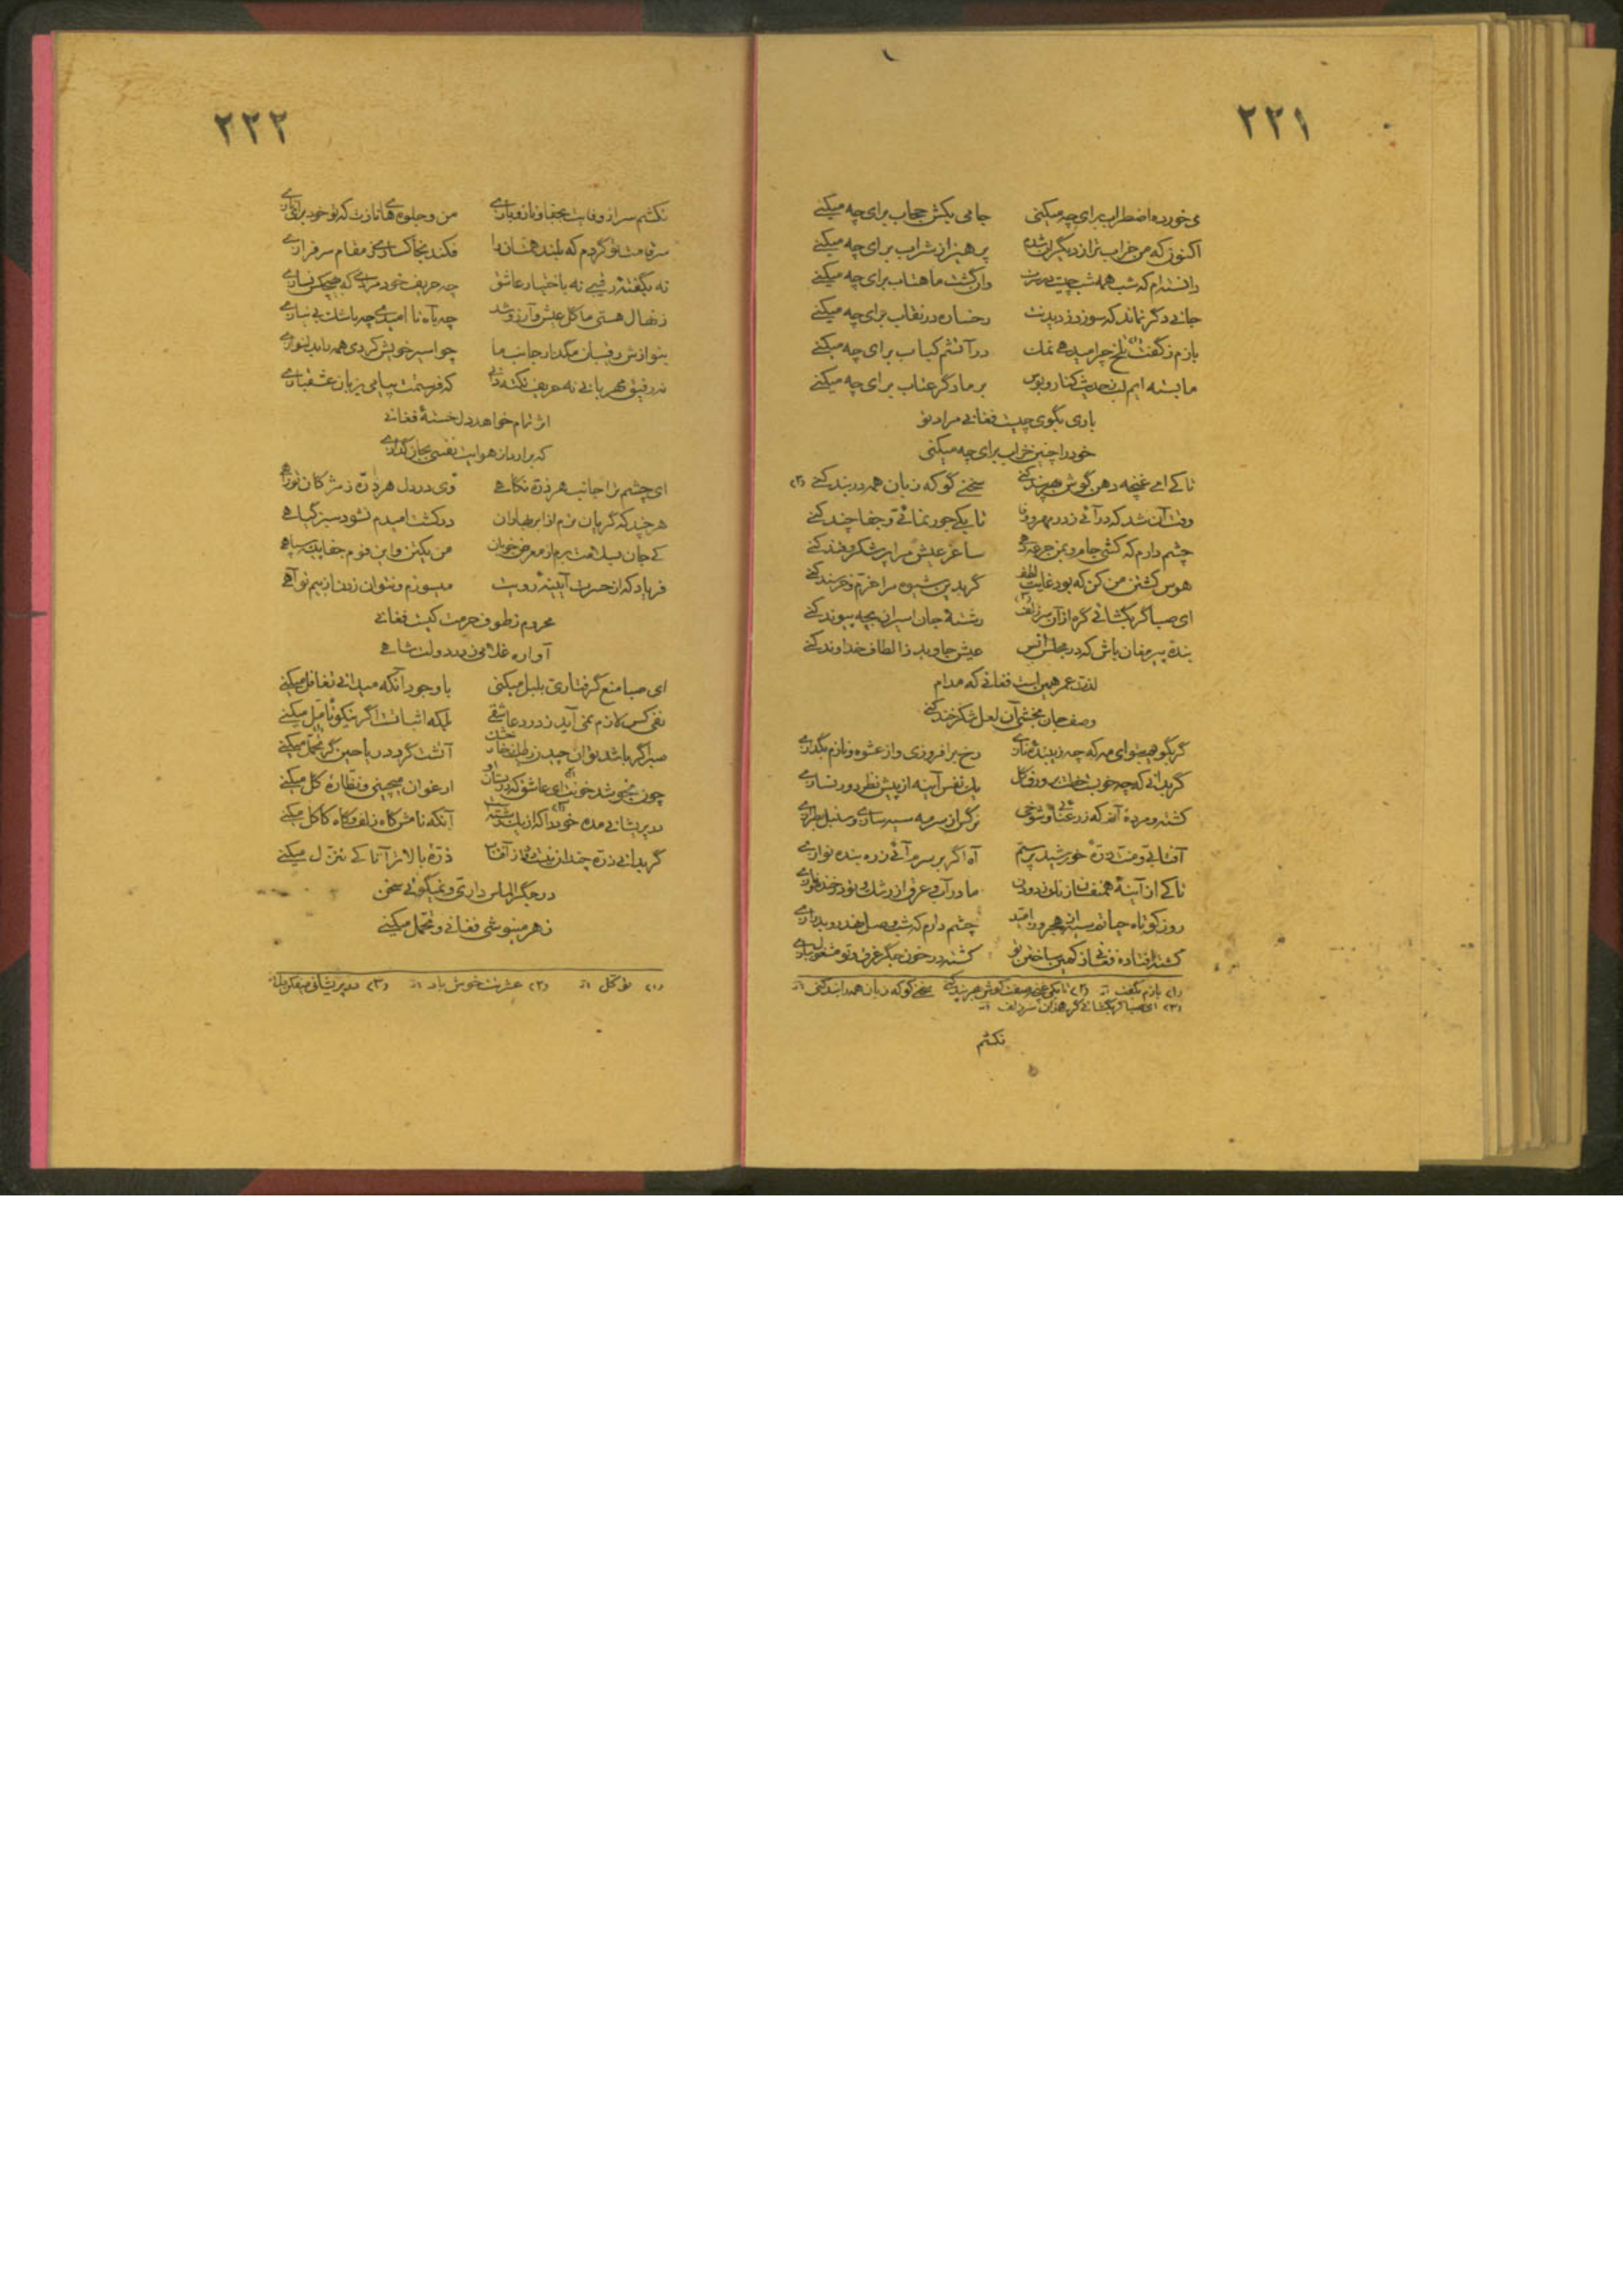 ۲۲۱
می خورده اضطراب برای چه میکنی جامی بکش حجاب برای چه میکنی
اکنون که من خراب تر از دیگران شدم پرهیز از شراب برای چه میکنی
دانسته ام که شب همه شب چیست در سرت وان گشت ماهتاب برای چه میکنی
جانی دگر نماند که سوزد ز دیدنت رخساره در نقاب برای چه میکنی
بازم ز گفت تلخ چرا میدهی نمک در آتشم کباب برای چه میکنی
ما بسته ایم لب ز حدیث کنار و بوس بر ما دگر عتاب برای چه میکنی
باری بگوی چیست فغانی مراد تو
خود را چنین خراب برای چه میکنی
تا کی ای غنچه دهن گوش بهر پند کنی سخنی گو که زبان همه در بند کنی (۲)
وقت آن شد که در آئی ز در مهر و وفا تا بکی جور نمائی و جفا چند کنی
چشم دارم که کشی جام و بمن جرعه دهی ساغر عیش مرا پر شکر و قند کنی
هوس کشتن من کن که بود غایت لطف گر بدین شیوه مرا خرم و خرسند کنی
ای صبا گر بگشائی گره از آن سر زلف رشتهٔ جان اسیران بچه پیوند کنی
بندهٔ پیر مغان باش که در مجلس انس عیش جاوید ز الطاف خداوند کنی
لذت عمر همین است فغانی که مدام
وصف جان بخشی آن لعل شکرخند کنی
گر بگویم بتو ای مه که چه زیبنده نازی رخ برافروزی و از عشوه و نازم بگدازی
گر بدانی که چه خوبست خطت بر ورق گل یک نفس آینه از پیش نظر دور نسازی
کشته و مردهٔ آنم که ز رعنائی و شوخی نرگس از سرمه سیه سازی و سنبل بطرازی
آفتابی تو و من ذرهٔ خورشید پرستم آه اگر بر سرم آئی ز ره بنده نوازی
تا کی از آینهٔ همنفسان زنگ زدودن ما در آب عرق از رشک و تو در خنده و بازی
روز کوتاه حیاتم بسر آمد چشم دارم که شب وصل نهد رو بدرازی
کشته افتاده فغانی ز کمین ساختن تو کشته در خون جگر غرق و تو مشغول ببازی
(۱) بازم بگفت (۲) تا بکی سخنی گو که زبان همه را بند کنی
(۳) ای صبا گر بگشائی گره از آن سر زلف
نکشم
۲۲۲
نکشم سر از وفایت بجفا و ناز و بازی من و جلوه های نازت که تو خود برای نازی
سر قامت تو گردم که بلند همتان را فکند بخاکساری ز مقام سرفرازی
نه بگفتهٔ رقیبی نه باختیار عاشق چه حریف خود مرادی که بهیچکس نسازی
ز نهال هستی ما گل عیش و آرزو شد چه بآه ناامیدی چه باشک بی نیازی
بنوازش رقیبان مگذار جانب ما چو اسیر خویش کردی همه را بدلنوازی
نه رفیق مهربانی نه حریف نکته دانی که فرستمت پیامی بزبان عشقبازی
اثر تمام خواهد دل خستهٔ فغانی
که برآرد از هوایت نفسی بجان گدازی
ای چشم ترا جانب هر ذره نگاهی وی در دل هر ذره ز مژگان تو راهی
هر چند که گریان ترم از ابر بهاران در کشت امیدم نشود سبز گیاهی
کی جان بسلامت برم از معرض خوبان من یک تن و این قوم جفاپیشه سپاهی
فریاد که از حسرت آیینهٔ رویت میسوزم و نتوان زدن از بیم تو آهی
محروم ز طوف حرمت کیست فغانی
آواره غلامی ز در دولت شاهی
ای صبا منع گرفتاری بلبل میکنی با وجود آنکه میدانی تغافل میکنی
نفی کس لازم نمی آید ز درد عاشقی بلکه اثباتست اگر نیکو تأمل میکنی
صبر اگر باشد توان چیدن رطب از خار خشک آتشت گردد ریاحین گر تحمل میکنی
چون بجوشد خونت ای عاشق که در بستان او ارغوان میچینی و نظارهٔ گل میکنی
در پریشانی مده خود را که از یک رشته است آنکه نامش گاه زلف و گاه کاکل میکنی
گر بدانی ذره چندان نیست فرق از آفتاب ذره بالاتر آ تا کی تنزل میکنی
در جگر الماس داری و نمیگوئی سخن
زهر مینوشی فغانی و تحمل میکنی
(۱) توکل (۲) عشرتت خوش باد (۳) در پریشانی